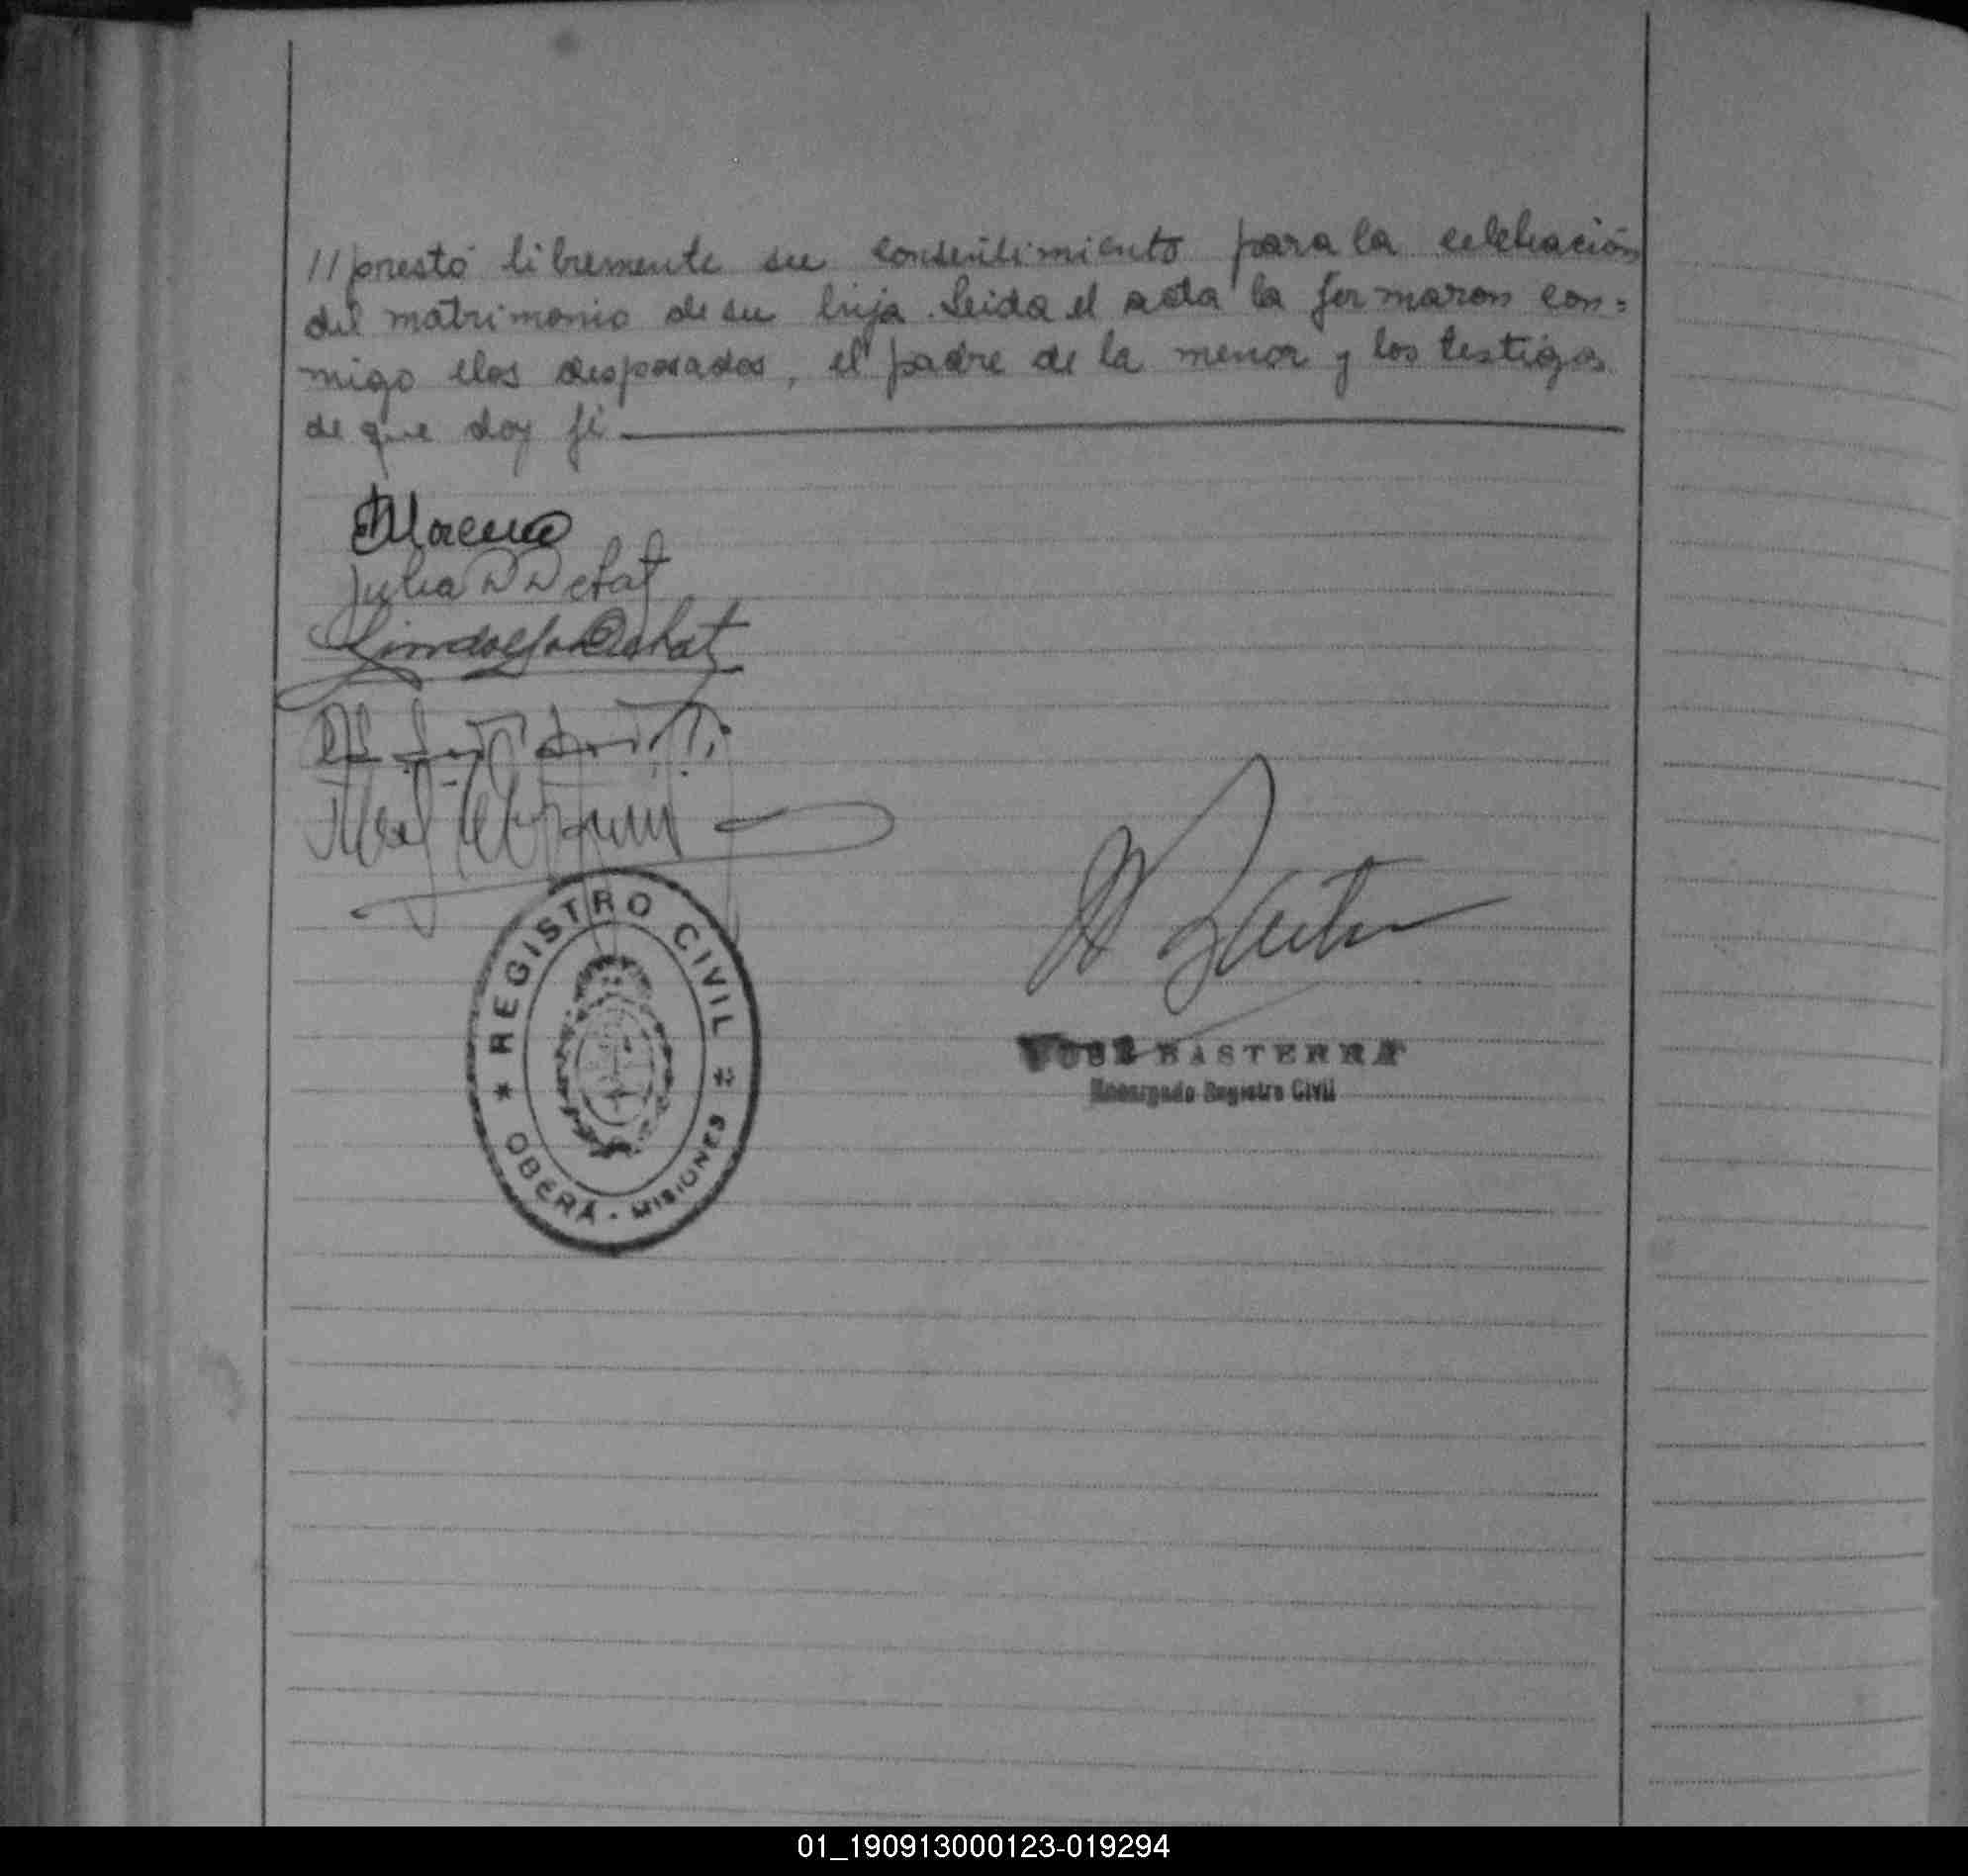 //prestó libremente su consentimiento para la celebración
del matrimonio de su hija. Leida el acta la firmaron con=
migo ellos desposados, el padre de la menor y los testigos
de que doy fé
EMoreno
Julia D Dchat
Lindolfo Dchat
REGISTRO CIVIL
OBERÁ - MISIONES
JOSE BASTERRA
Encargado Registro Civil
01_190913000123-019294